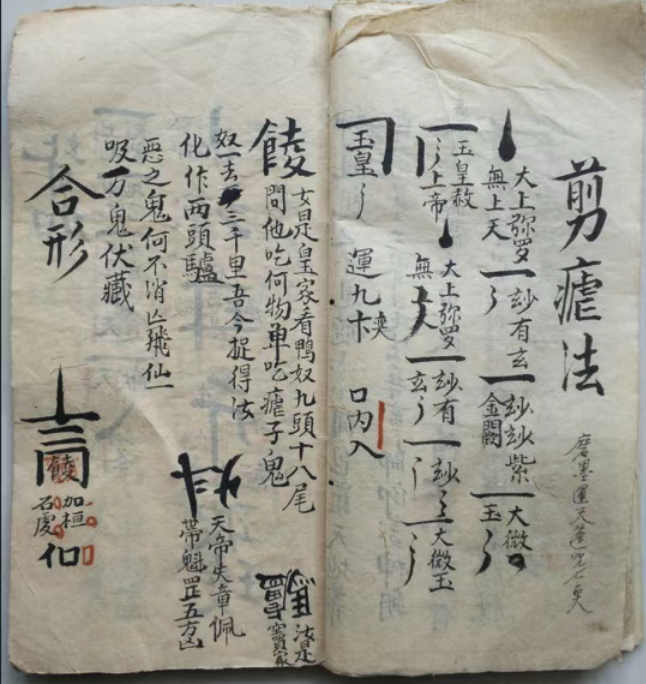 剪瘧法
磨墨運天蓬咒
大上弥罗
無上天
玅有玄
玅玅紫
金闕
大微
玉
玉皇赦
上帝
大上弥罗
無
玅有
玄
玅
大微玉
玉皇
運九
口内入
餕
女是皇家看鴨奴九頭十八尾
問他吃何物单吃瘧子鬼
奴一去三千里吾今捉得汝
化作两頭驢
惡之鬼何不消亡飛仙一
吸万鬼伏藏
合形
汝是
天帝失章佩
帶魁罡五方凶
加桓
石